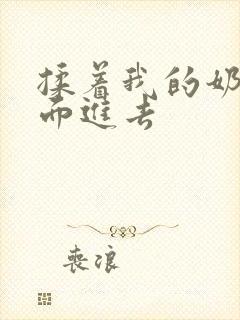 揉着我的奶
而进去
喪浪